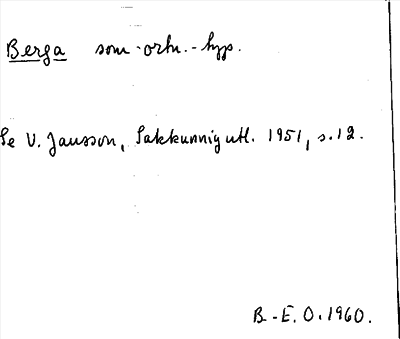 Berga som ortn.-hyp.
Se V. Jansson, Sakkunnigutl. 1951, s. 12.
B.-E. O. 1960.